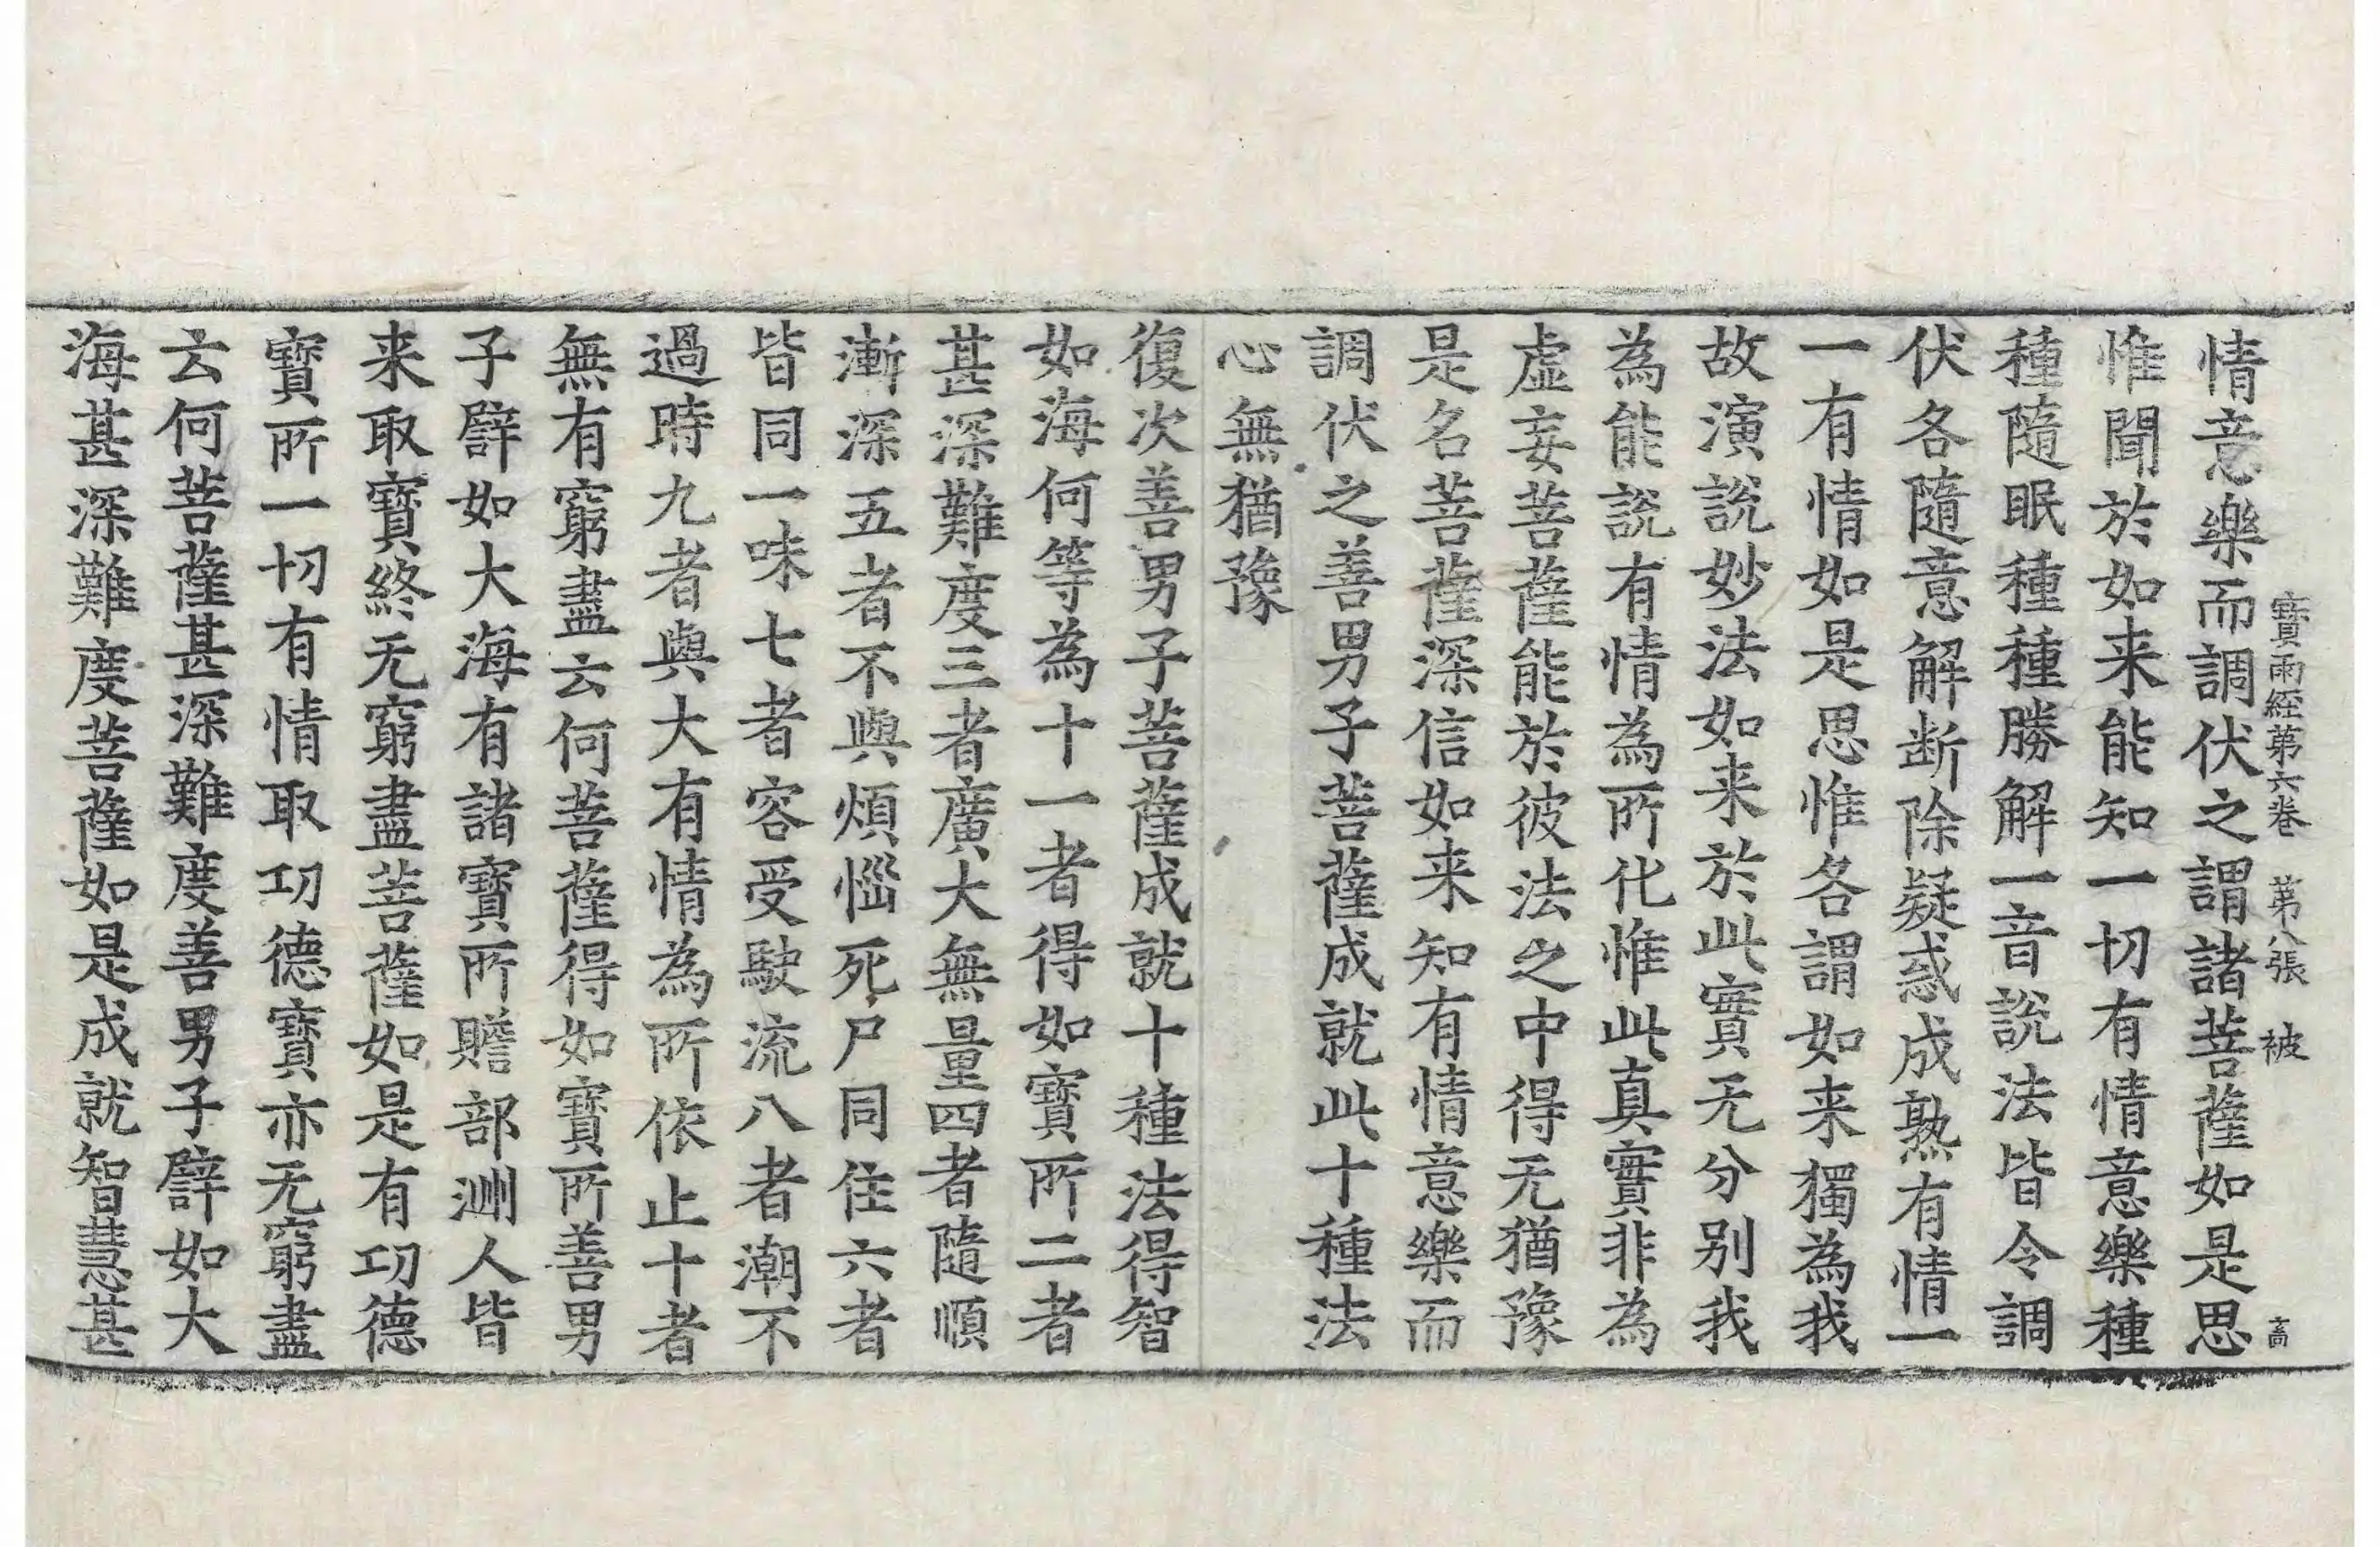 寳雨經第六卷 第八張 被 高
情意樂而調伏之謂諸菩薩如是思
惟聞於如来能知一切有情意樂種
種隨眠種種勝解一音說法皆令調
伏各隨意解断除疑惑成熟有情一
一有情如是思惟各謂如来獨為我
故演說妙法如来於此實无分别我
為能說有情為所化惟此真實非為
虛妄菩薩能於彼法之中得无猶豫
是名菩薩深信如来知有情意樂而
調伏之善男子菩薩成就此十種法
心無猶豫
復次善男子菩薩成就十種法得智
如海何等為十一者得如寳所二者
甚深難度三者廣大無量四者隨順
漸深五者不與煩惱死尸同住六者
皆同一味七者容受駛流八者潮不
過時九者與大有情為所依止十者
無有窮盡云何菩薩得如寳所善男
子譬如大海有諸寳所贍部洲人皆
来取寳終无窮盡菩薩如是有功德
寳所一切有情取功德寳亦无窮盡
云何菩薩甚深難度善男子譬如大
海甚深難度菩薩如是成就智慧甚